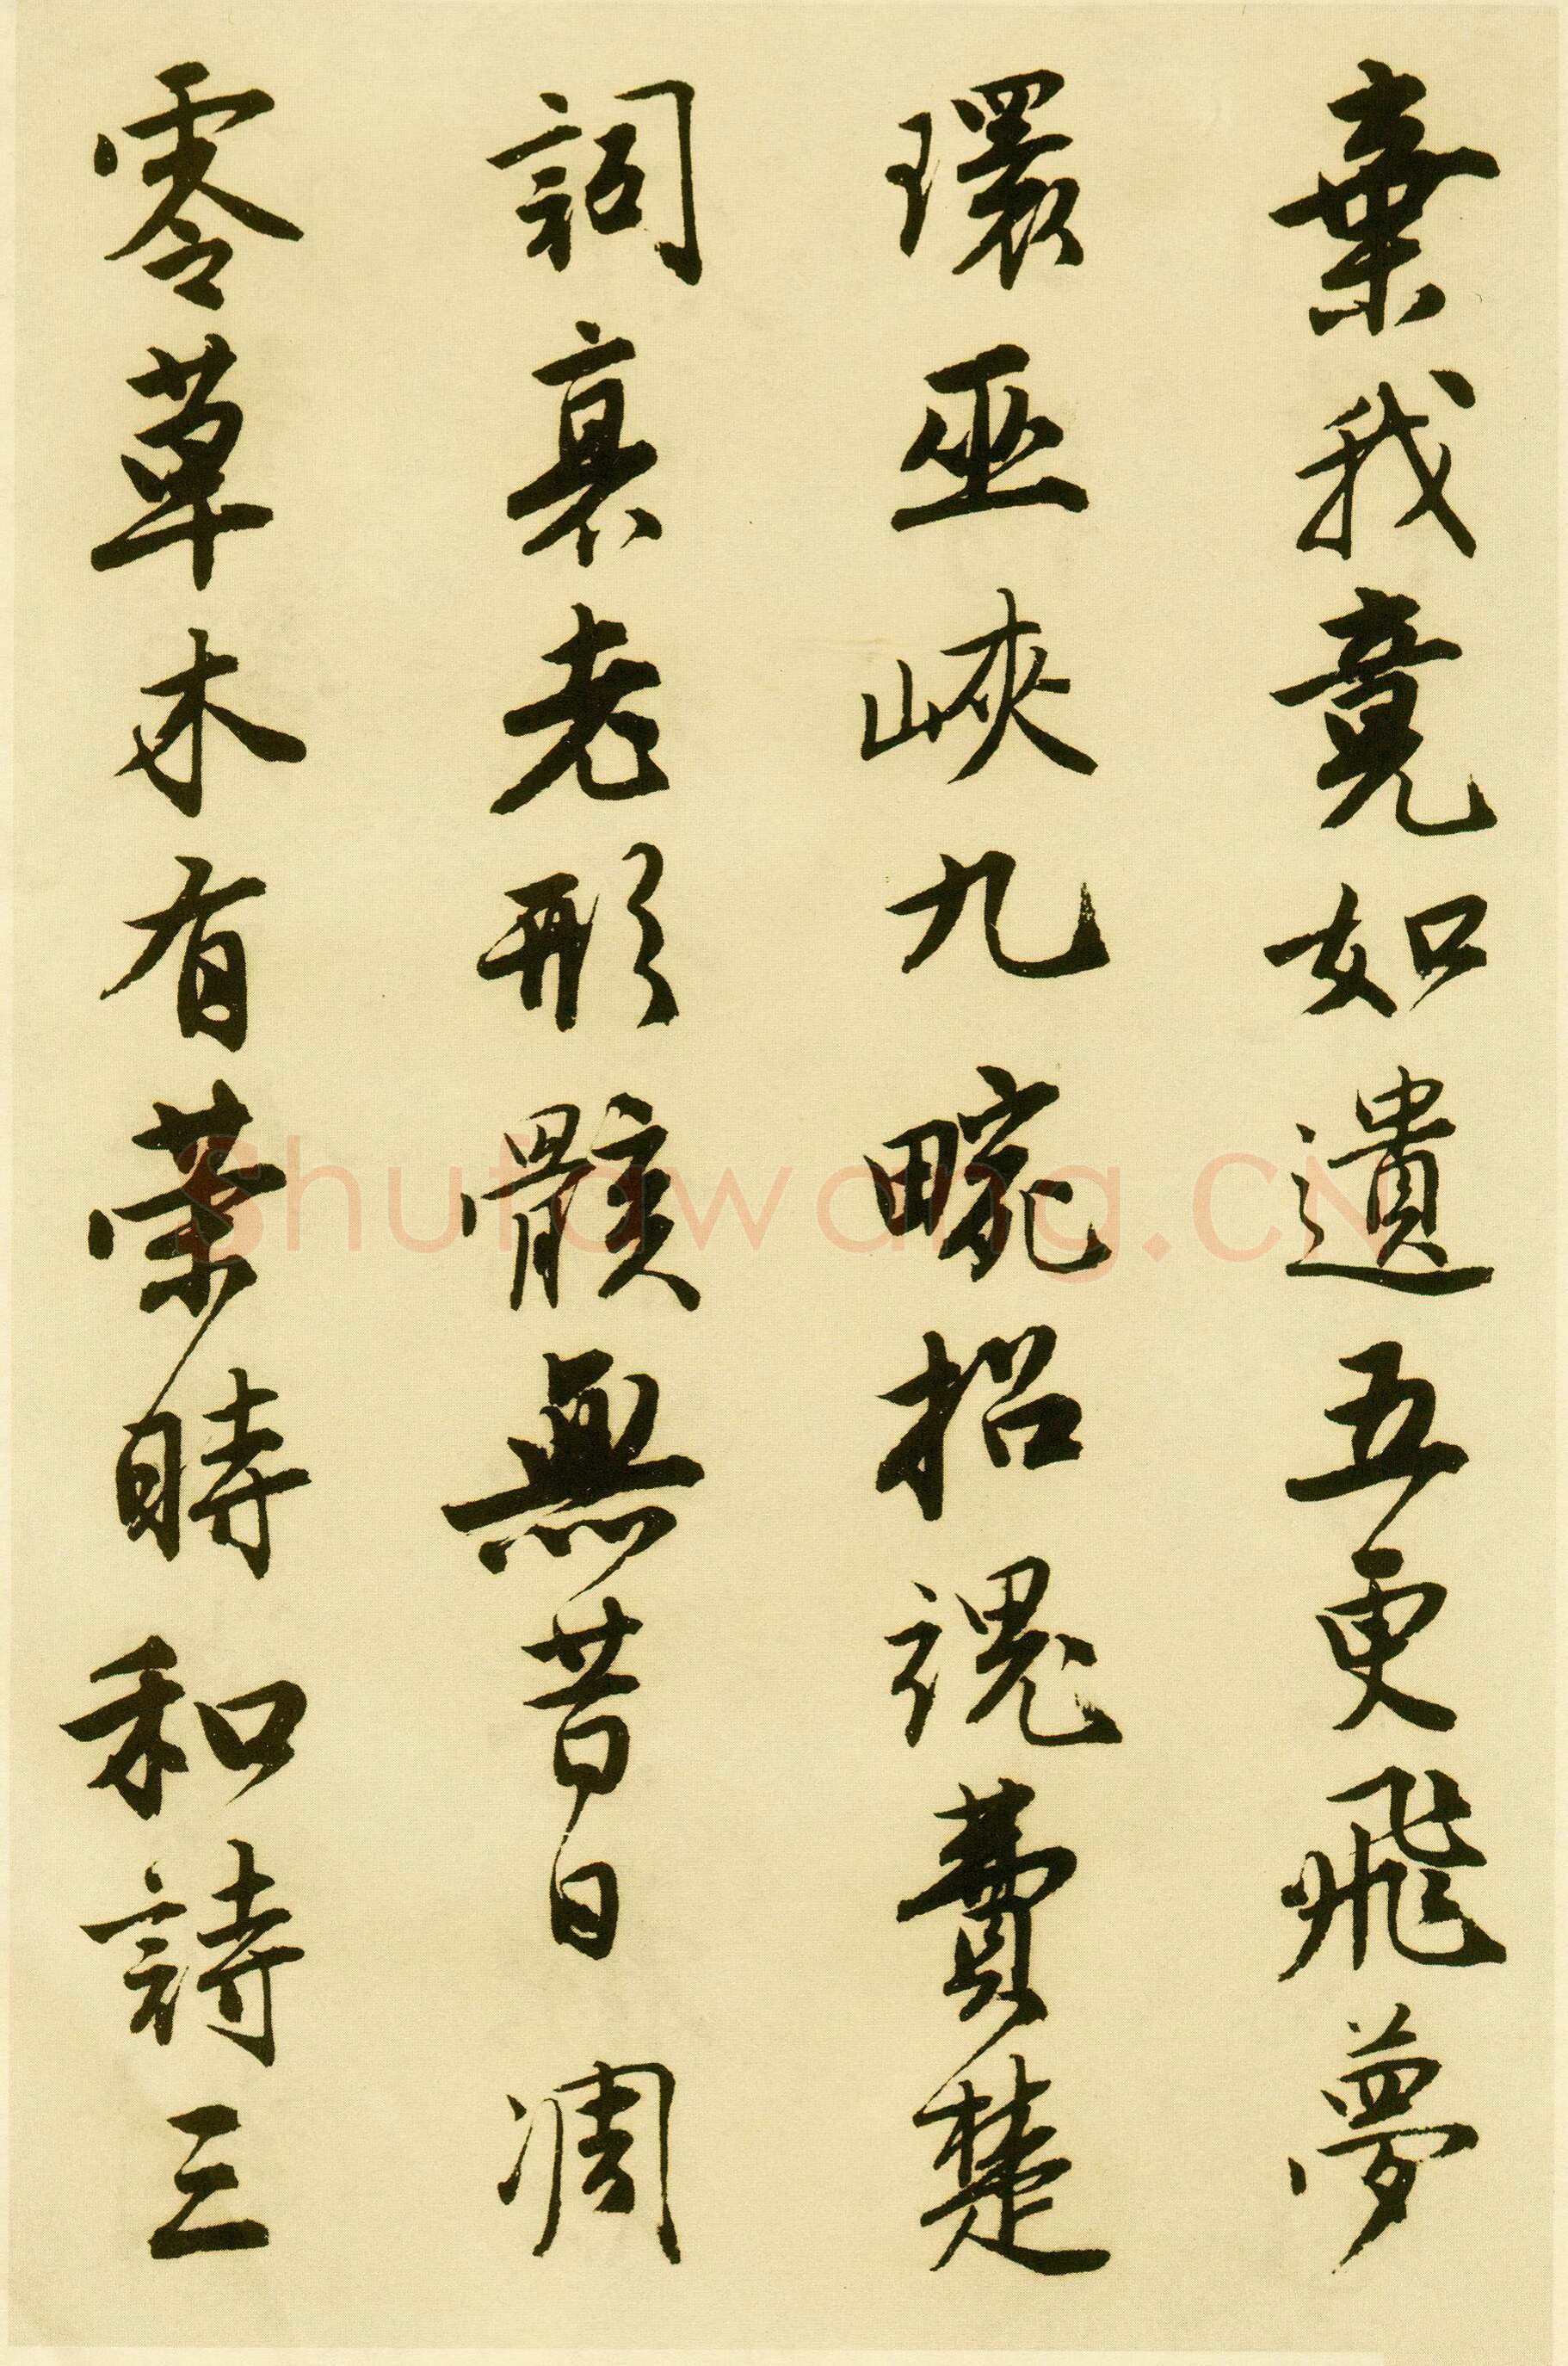 棄我竟如遺五更飛夢
環巫峽九畹招魂費楚
詞衰老形骸無昔日凋
零草木有榮時和詩三
shufawang.CN